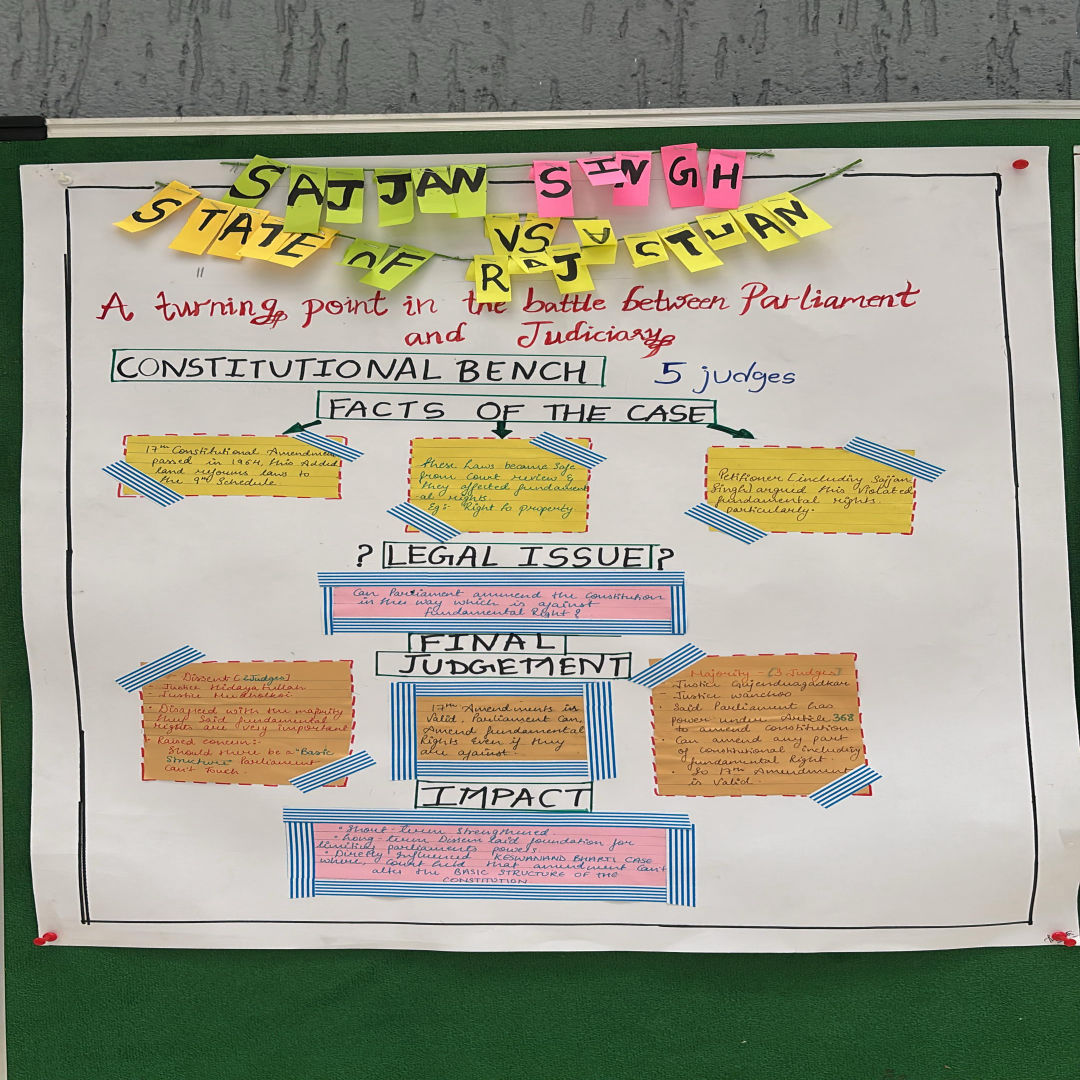 SAJJAN SINGH
VS
STATE OF RAJASTHAN
A turning point in the battle between Parliament
and Judiciary
CONSTITUTIONAL BENCH 5 judges
FACTS OF THE CASE
17th Constitutional Amendment
passed in 1964, this Added
land reforms laws to
the 9th Schedule.
these laws became safe
from Court review &
they affected fundament
al rights.
Eg:- Right to property
Petitioner [including Sajjan
Singh] argued this violated
fundamental rights
particularly.
? LEGAL ISSUE ?
Can Parliament ammend the Constitution
in this way which is against
Fundamental Right?
FINAL
JUDGEMENT
- Dissent [2 Judges]
- Justice Hidayatullah
- Justice Mudholkar
• Disagreed with the majority
they said fundamental
rights are very important
• Raised concern:-
Should there be a "Basic
Structure" Parliament
Can't touch.
17th Amendments is
Valid, Parliament Can,
Amend fundamental
Rights Even if they
are against.
Majority [3 Judges]
- Justice Gajendragadkar
- Justice Wanchoo
• Said Parliament has
power under Article 368
to amend constitution.
• Can amend any part
of constitutional including
fundamental Right.
• So 17th Amendment
is Valid.
IMPACT
• Short-term Strengthened
• Long-term Dissent laid foundation for
limiting parliaments powers.
• Directly Influenced KESWANAND BHARTI CASE
where, Court held that amendment Can't
alter the BASIC STRUCTURE OF THE
CONSTITUTION